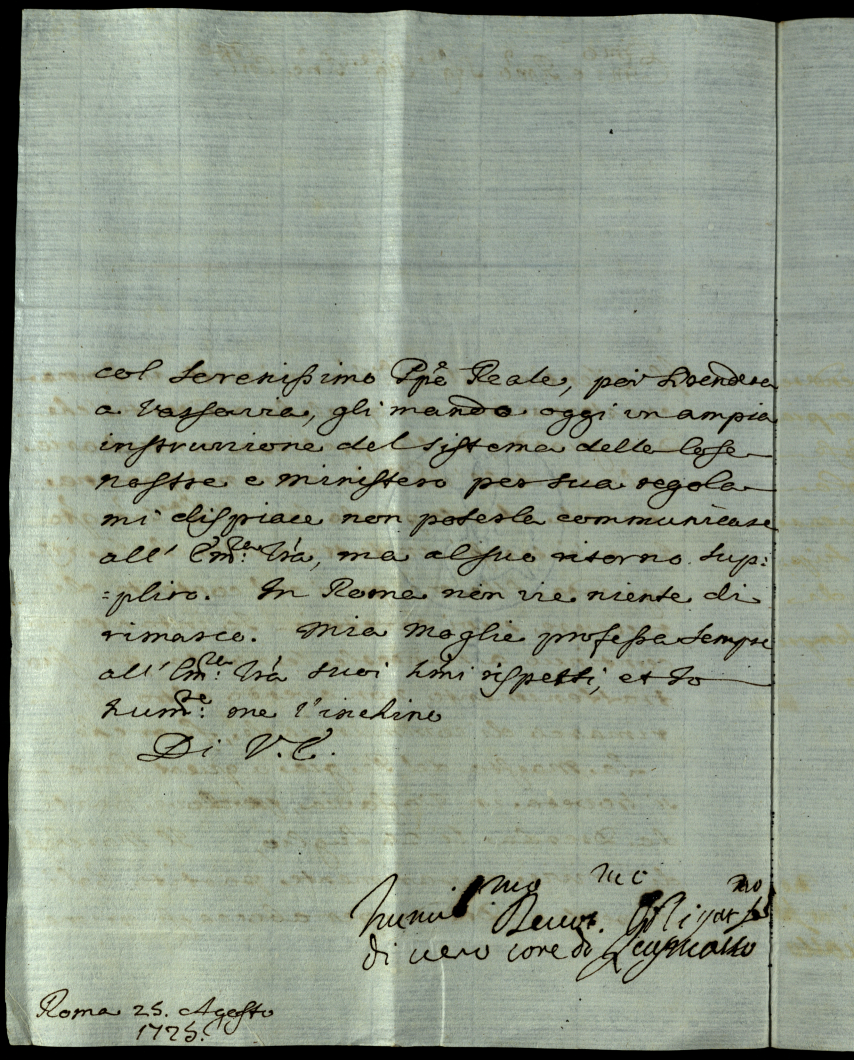 col Serenissimo Ppē Reale, per prendere
a Varsavia, gli mando oggi un ampia
instruzzione del sistema delle Cose
nostre e ministero per sua regola
mi dispiace non poterla communicare
all' Em:za Vrā, ma al suo ritorno sup:
:pliro. In Roma non vie niente di
rimarco. Mia Moglie professa sempre
all' Em:za Vrā suoi hmi rispetti, et Io
hum:te me l'inchino
Di V. E.
Humil.mo Devot.mo Obligat.mo
di vero core
Roma 25. Agosto
1725.